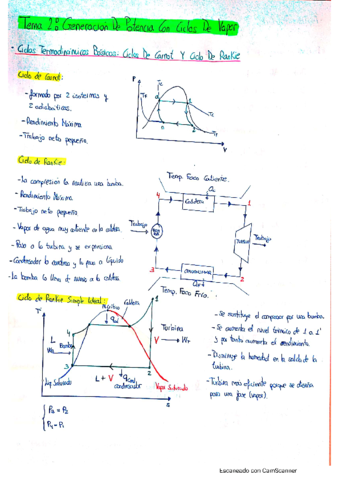 Tema 2: Generación De Potencia Con Ciclos De Vapor
- Ciclos Termodinámicos Básicos. Ciclo De Carnot Y Ciclo De Rankie
Ciclo de Carnot:
- formado por 2 isotermas y
2 adiabáticas.
- Rendimiento Máximo
- Trabajo neto pequeño.
P
V
Ciclo de Rankie:
- La compresión la realiza una bomba.
- Rendimiento Máximo
- Trabajo neto pequeño
- Vapor de agua muy caliente en la caldera.
- Pasa a la turbina y se expansiona.
- Condensador lo condensa y lo pasa a líquido
- La bomba lo lleva de nuevo a la caldera
Temp. Foco Caliente.
4
Caldera
1
Trabajo
Trabajo
3
2
Temp. Foco Fría.
Ciclo de Rankie Simple Ideal:
T
Caldera
1
4
Bomba
3
Turbina
L + V
condensador
2
Líq. Saturado
Vapor Saturado
S
- Se sustituye el compresor por una bomba.
- Se aumenta el nivel térmico de 1 a 1'
y por tanto aumenta el rendimiento.
- Disminuye la humedad en la salida de la
turbina.
- Turbina más eficiente porque se diseña
para una fase (vapor).
Escaneado con CamScanner